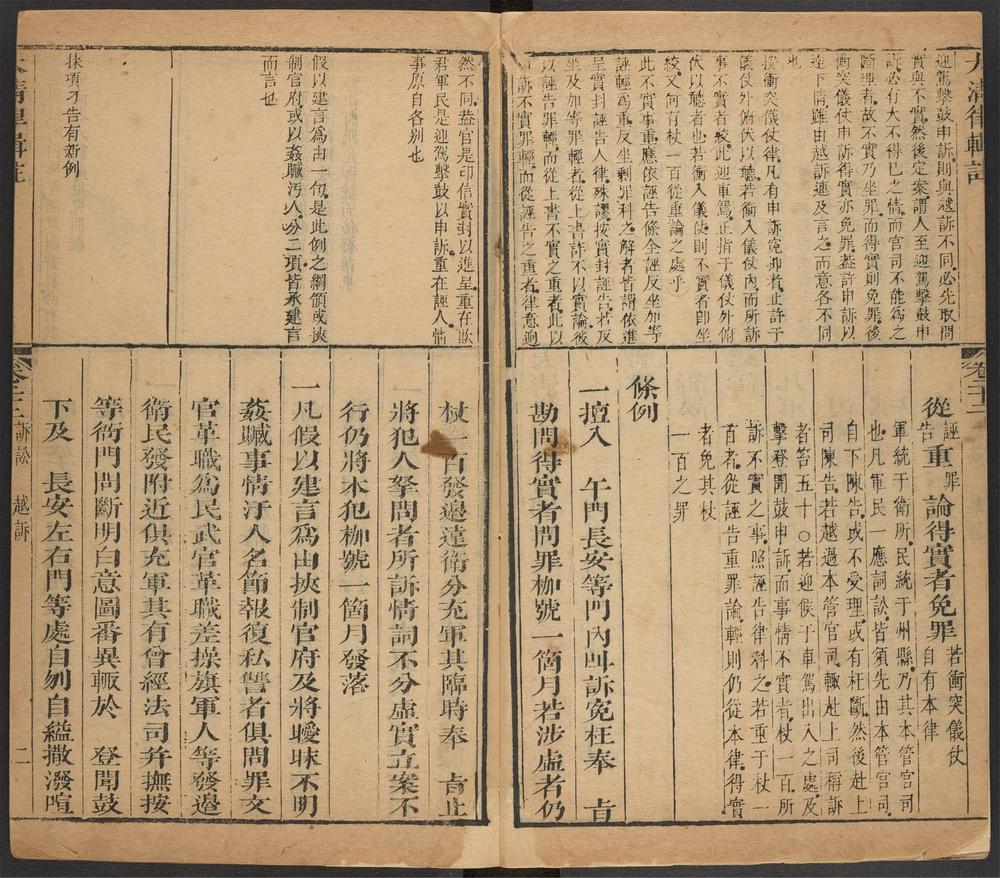 大清律輯註
迎駕擊鼓申訴則與越訴不同必先取問
實與不實然後定案謂人至迎駕擊鼓申
訴必有大不得已之情而官司不能爲之
斷理者故不實乃坐罪而得實則免罪後
衝突儀仗申訴得實亦免罪葢許申訴以
達下情雖由越訴連及言之而意各不同
也
按衝突儀仗律凡有申訴寃抑者止許于
儀仗外俯伏以聽若衝入儀仗內而所訴
事不實者絞此迎車駕正指于儀仗外俯
伏以聽者也若衝入儀仗則不實者卽坐
絞又何有杖一百從重論之處乎
此不實事重應依誣告條全誣反坐加等
誣輕爲重反坐剩罪科之解者皆謂依進
呈實封誣告人律殊謬按實封誣告若反
坐及加等罪輕者從上書詐不以實論彼
以誣告罪輕而從上書不實之重者此以
申訴不實罪輕而從誣告之重者律意迥
卷二十二
從誣告重罪論得實者免罪若衝突儀仗自有本律
軍統于衛所民統于州縣乃其本管官司
也凡軍民一應詞訟皆須先由本管官司
自下陳告或不受理或有枉斷然後赴上
司陳告若越過本管官司輒赴上司稱訴
者笞五十○若迎候于車駕出入之處及
擊登聞鼓申訴而事情不實者杖一百所
訴不實之事照誣告律科之若重于杖一
百者從誣告重罪論輕則仍從本律得實
者免其杖
一百之罪
條例
一擅入　午門長安等門內叫訴寃枉奉　旨
勘問得實者問罪枷號一箇月若涉虛者仍
然不同葢官是印信實封以進呈重在欺
君軍民是迎駕擊鼓以申訴重在誣人情
事原自各别也
假以建言爲由一句是此例之綱領或挾
制官府或以姦贓汚人分二項皆承建言
而言也
抹項才告有新例
大清律輯註
杖一百發邊遠衛分充軍其臨時奉　旨止
將犯人拏問者所訴情詞不分虛實立案不
行仍將本犯枷號一箇月發落
一凡假以建言爲由挾制官府及將曖昧不明
姦贓事情汙人名節報復私讐者俱問罪文
官革職爲民武官革職差操旗軍人等發邊
衛民發附近俱充軍其有曾經法司并撫按
等衙門問斷明白意圖番異輒於　登聞鼓
下及　長安左右門等處自刎自縊撒潑喧
卷二十二　訴訟　越訴　二